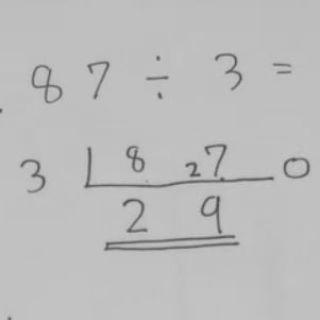 87 ÷ 3 =
3 8 27 0
2 9